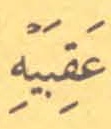 عَقِبَيْهِ